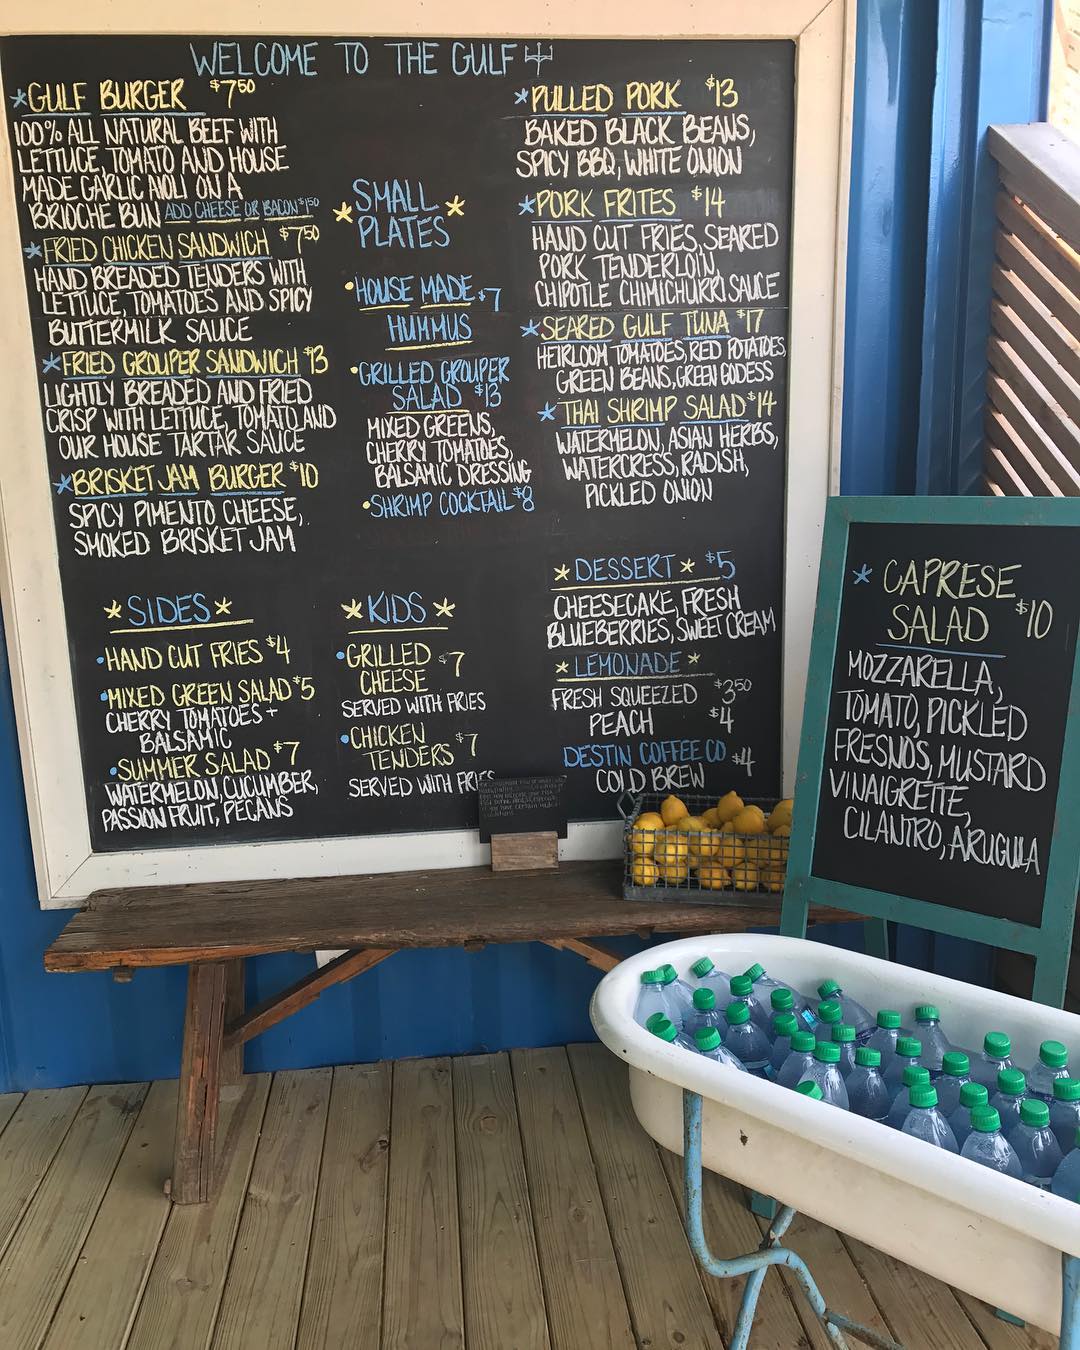 WELCOME TO THE GULF
*GULF BURGER $7.50
100% ALL NATURAL BEEF WITH
LETTUCE, TOMATO AND HOUSE
MADE GARLIC AIOLI ON A
BRIOCHE BUN ADD CHEESE OR BACON $1.50
*FRIED CHICKEN SANDWICH $7.50
HAND BREADED TENDERS WITH
LETTUCE, TOMATOES AND SPICY
BUTTERMILK SAUCE
*FRIED GROUPER SANDWICH $13
LIGHTLY BREADED AND FRIED
CRISP WITH LETTUCE, TOMATO AND
OUR HOUSE TARTAR SAUCE
*BRISKET JAM BURGER $10
SPICY PIMENTO CHEESE,
SMOKED BRISKET JAM
*SIDES*
•HAND CUT FRIES $4
•MIXED GREEN SALAD $5
CHERRY TOMATOES +
BALSAMIC
•SUMMER SALAD $7
WATERMELON, CUCUMBER,
PASSION FRUIT, PECANS
*SMALL
PLATES*
•HOUSE MADE $7
HUMMUS
•GRILLED GROUPER
SALAD $13
MIXED GREENS,
CHERRY TOMATOES,
BALSAMIC DRESSING
•SHRIMP COCKTAIL $8
*KIDS*
•GRILLED $7
CHEESE
SERVED WITH FRIES
•CHICKEN
TENDERS $7
SERVED WITH FRIES
*PULLED PORK $13
BAKED BLACK BEANS,
SPICY BBQ, WHITE ONION
*PORK FRITES $14
HAND CUT FRIES, SEARED
PORK TENDERLOIN,
CHIPOTLE CHIMICHURRI SAUCE
*SEARED GULF TUNA $17
HEIRLOOM TOMATOES, RED POTATOES,
GREEN BEANS, GREEN GODESS
*THAI SHRIMP SALAD $14
WATERMELON, ASIAN HERBS,
WATERCRESS, RADISH,
PICKLED ONION
*DESSERT* $5
CHEESECAKE, FRESH
BLUEBERRIES, SWEET CREAM
*LEMONADE*
FRESH SQUEEZED $3.50
PEACH $4
DESTIN COFFEE CO $4
COLD BREW
*CAPRESE
SALAD $10
MOZZARELLA,
TOMATO, PICKLED
FRESNOS, MUSTARD
VINAIGRETTE,
CILANTRO, ARUGULA